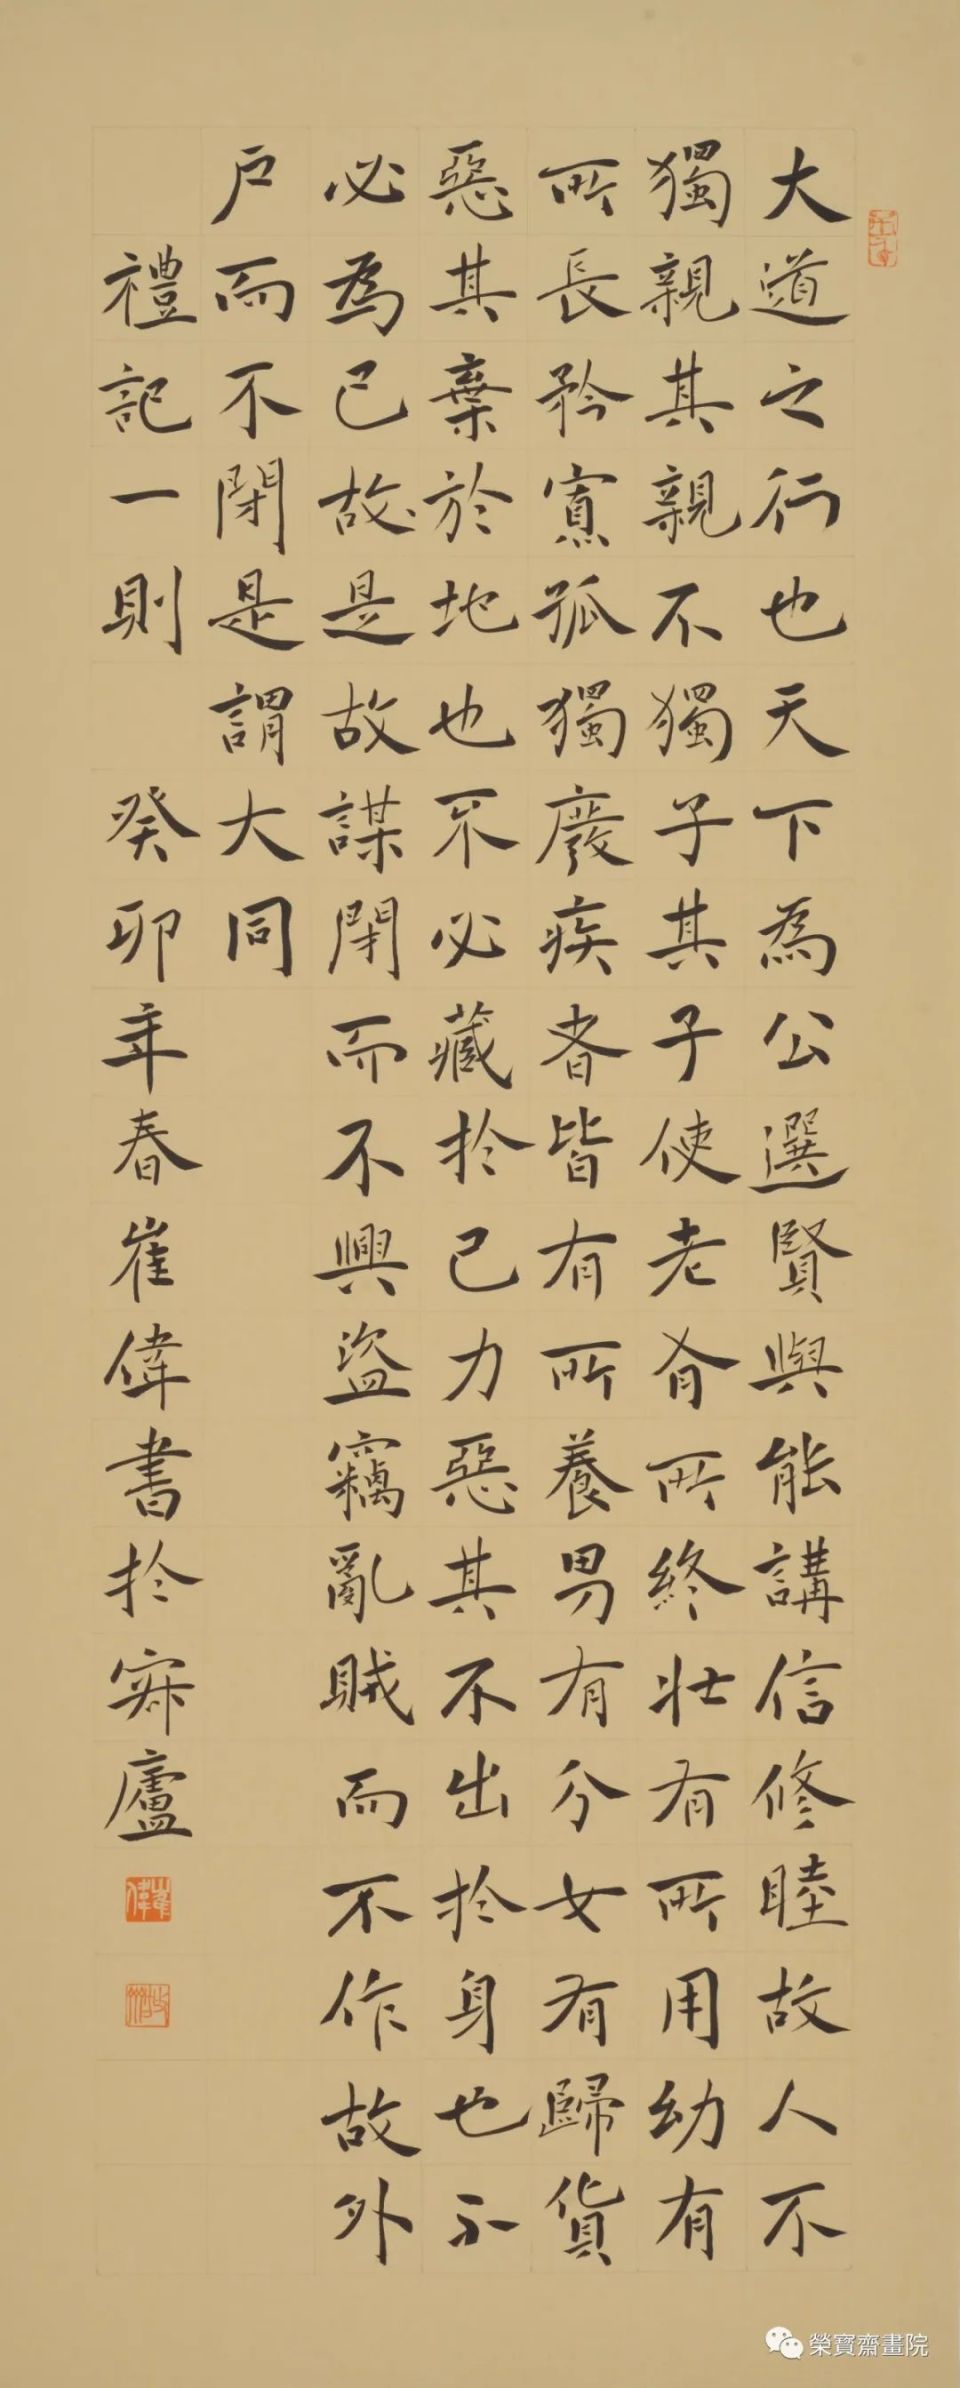 大道之行也天下為公選賢與能講信修睦故人不
獨親其親不獨子其子使老有所終壯有所用幼有
所長矜寡孤獨廢疾者皆有所養男有分女有歸貨
惡其棄於地也不必藏於己力惡其不出於身也不
必為己故是故謀閉而不興盜竊亂賊而不作故外
戶而不閉是謂大同
禮記一則 癸卯年春崔偉書於寂廬
崔偉
榮寶齋畫院